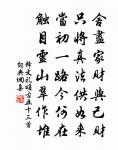 舍盡家財與己財
只將真法供如來
當初一路今何在
觸目靈山翠作堆
釋文礼頌古五十三首
詞典網集